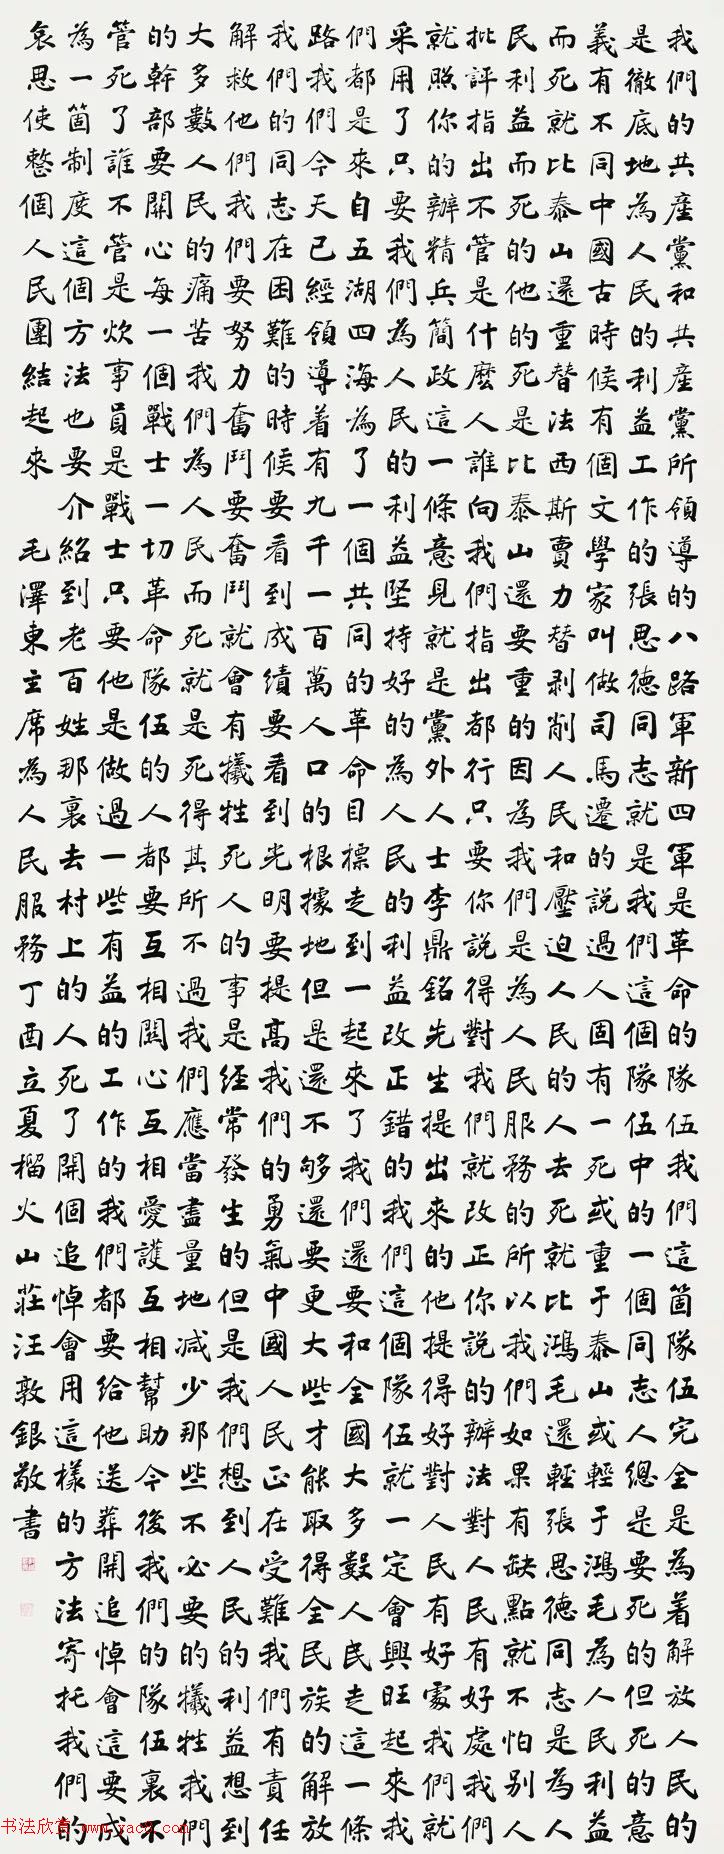 我們的共產黨和共產黨所領導的八路軍新四軍是革命的隊伍我們這箇隊伍完全是為着解放人民的
是徹底地為人民的利益工作的張思德同志就是我們這個隊伍中的一個同志人總是要死的但死的意
義有不同中國古時候有個文學家叫做司馬遷的說過人固有一死或重于泰山或輕于鴻毛為人民利益
而死就比泰山還重替法西斯賣力替剥削人民和壓迫人民的人去死就比鴻毛還輕張思德同志是為人
民利益而死的他的死是比泰山還要重的因為我們是為人民服務的所以我們如果有缺點就不怕別人
批評指出不管是什麼人誰向我們指出都行只要你說得對我們就改正你說的辦法對人民有好處我們
就照你的辦精兵簡政這一條意見就是黨外人士李鼎銘先生提出來的他提得好對人民有好處我們就
采用了只要我們為人民的利益堅持好的為人民的利益改正錯的我們這個隊伍就一定會興旺起來我
們都是來自五湖四海為了一個共同的革命目標走到一起來了我們還要和全國大多數人民走這一條
路我們今天已經領導着有九千一百萬人口的根據地但是還不够還要更大些才能取得全民族的解放
我們的同志在困難的時候要看到成績要看到光明要提高我們的勇氣中國人民正在受難我們有責任
解救他們我們要努力奮鬥要奮鬥就會有犧牲死人的事是經常發生的但是我們想到人民的利益想到
大多數人民的痛苦我們為人民而死就是死得其所不過我們應當盡量地减少那些不必要的犧牲我們
的幹部要關心每一個戰士一切革命隊伍的人都要互相關心互相愛護互相幫助今後我們的隊伍裏不
管死了誰不管是炊事員是戰士只要他是做過一些有益的工作的我們都要給他送葬開追悼會這要成
為一箇制度這個方法也要介紹到老百姓那裏去村上的人死了開個追悼會用這樣的方法寄托我們的
哀思使整個人民團結起來 毛澤東主席為人民服務丁酉立夏榴火山莊汪敦銀敬書
书法欣赏 www.yac8.com